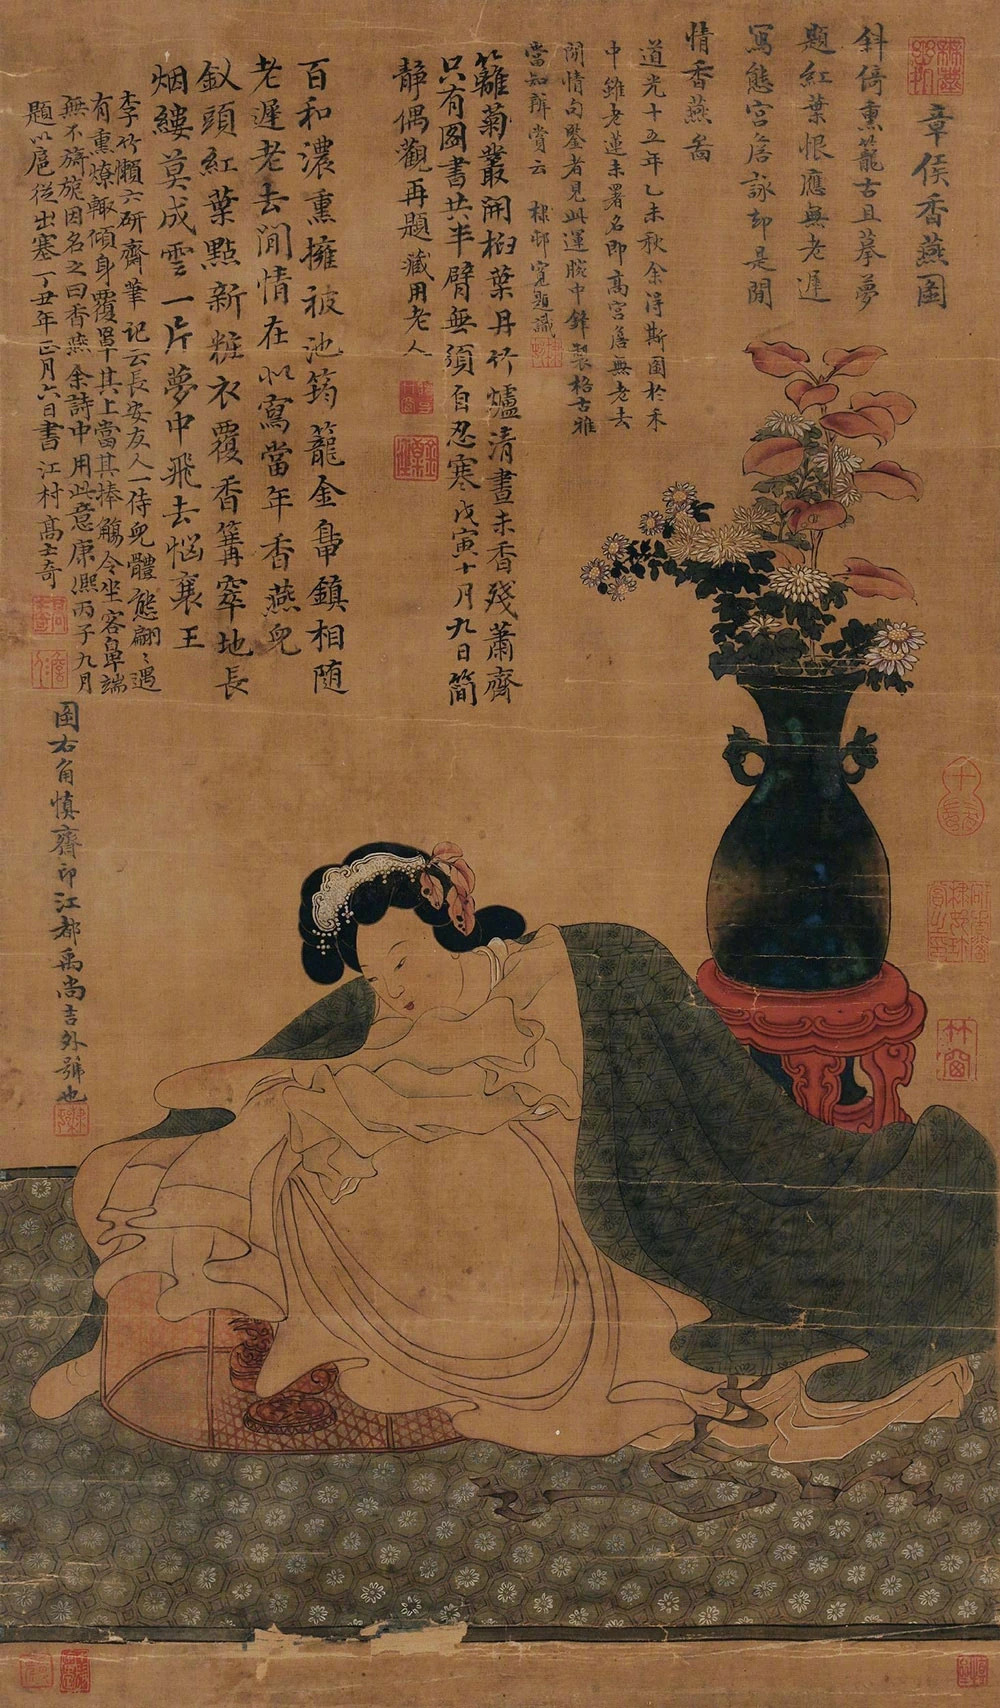 章侯香燕圖
斜倚熏籠古且摹夢
題紅葉恨應無老遲
寫態宮詹詠却是閒
情香燕啚
道光十五年乙未秋余得斯圖於禾
中雖老蓮未署名即高宮詹無老去
閒情句鑒者見此運腕中鋒製格古雅
當知辨賞云
題識
籬菊叢開桕葉丹竹爐清晝未香殘蕭齋
只有圖書共半臂無須自忍寒戊寅十月九日簡
靜偶觀再題藏用老人
百和濃熏擁被池筠籠金鼎鎮相隨
老遲老去閒情在似寫當年香燕兒
釵頭紅葉點新粧衣覆香篝窣地長
烟縷莫成雲一片夢中飛去惱襄王
李竹懶六研齋筆記云長安友人一侍兒體態翩翩遇
有熏燎輙傾身覆罩其上當其捧觴令坐客鼻端
無不旖旎因名之曰香燕余詩中用此意康熙丙子九月
題以扈從出塞丁丑年正月六日書江村高士奇
圖右角慎齋印江都禹尚吉外號也